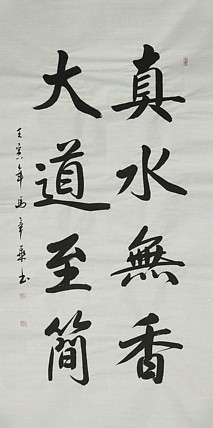 真水無香
大道至簡
壬寅年馬年燕书